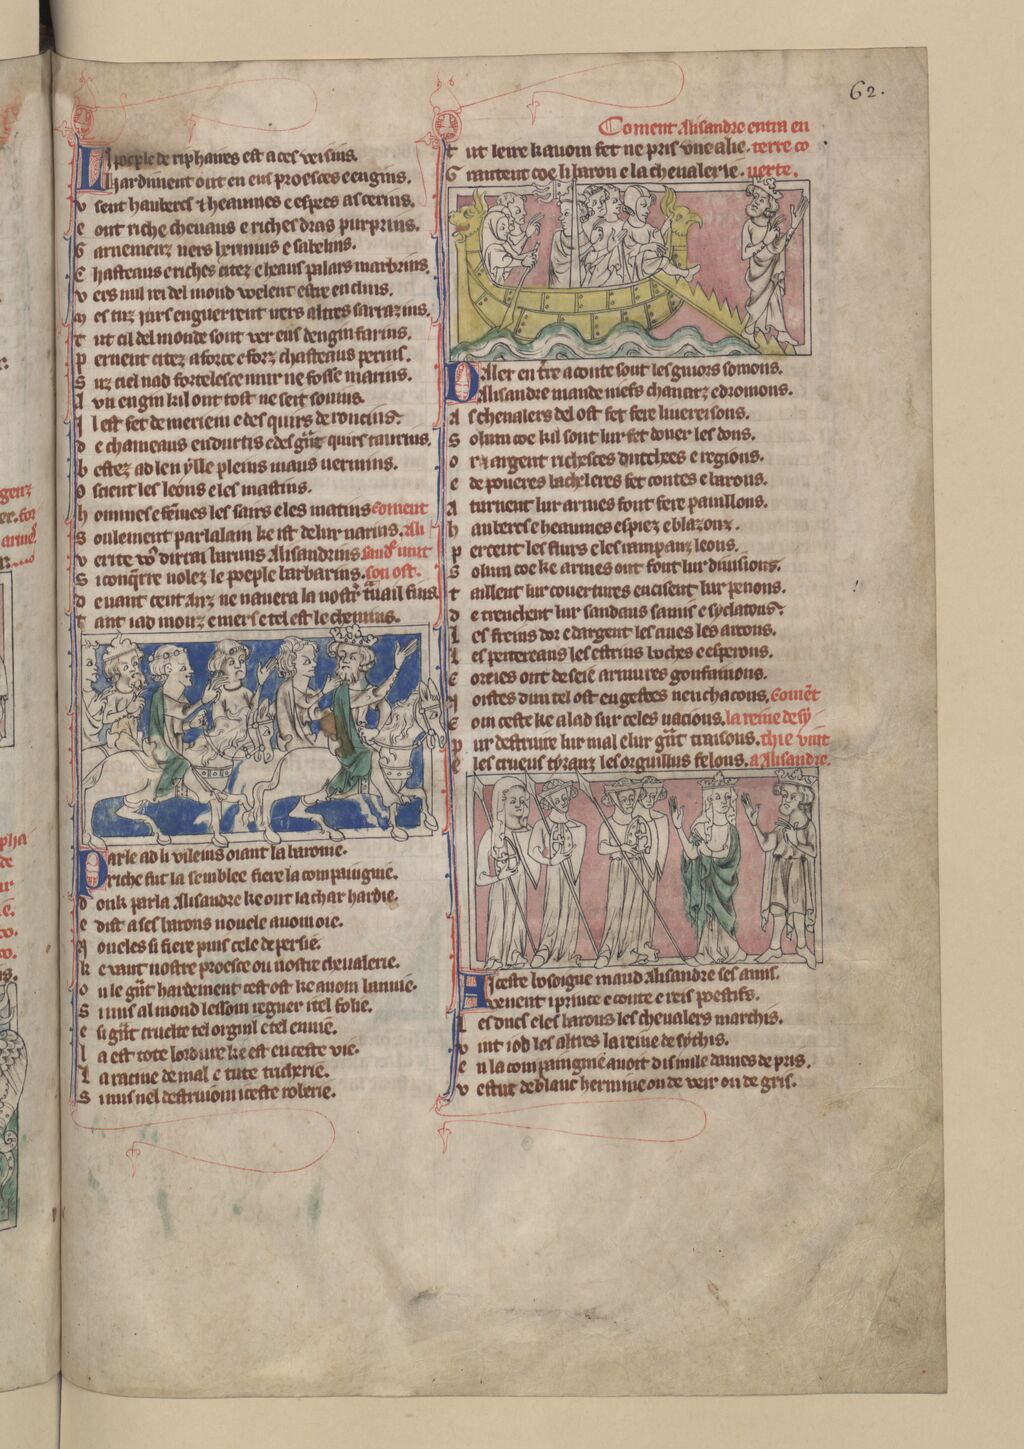 62.
Li poeple de riphaires est a ces veisins.
hardiment ont en eus proesces e engins.
vsent haubercs & heaumes e espees ascerins.
e ont riche chevaus e riches dras purprins.
Garnemenz vers hermins e sabelins.
Chasteaus e riches citez e beaus palais marbrins.
vers nul rei del mond voelent estre enclins.
tut cil del monde sont vers eus
pernent citez a force e forz chasteaus perins.
Suz ciel nad fortelesce mur ne fosse marins.
A un engin kil ont tost ne seit souins.
Il est fet de meriem e des quirs de roncins.
de chameaus endurtis e des gñt quirs taurins.
bestez ad leu ylle pleins maus vermins.
oscient les leons e les mastins.
hommes e femes les sairs e les matins Coment
Soulement par lalain ke ist de lur narins. Ali
verite vo dirrai luruns Alisandrins sand' vint
Si conqrre volez le poeple barbarins. son ost.
devant cent anz ne navera la nostr tuail fins
tant iad mouz e mers e tel est le chemins.
Parle ad li vileins oiant la baronie.
riche fut la semblee fiere la compaignie.
donk parla Alisandre ke ont la char hardie.
e dist a ses barons novele avom oie.
Noveles si fiere puis cele de persie.
ke vaut nostre proesce ou nostre chevalerie.
ou le gñt hardement cest ost ke avom banie.
Si nus al mond lessom regner itel folie.
e si gñt cruelte tel orguil e tel envie.
la est tote lordure ke est en ceste vie.
La racine de mal e tute tricherie.
Si nus nel destruiom iceste colerie.
Coment Alisandre entra en
tut leire k avom fet ne pris une alie. terre co
Grantent coe li baron e la chevalerie. verte.
Daler en tre aconte sont les guiors somons.
Alisandre mande niefs chananz e dromons.
As chevalers del ost fet fere livereisons.
Solum coe kil sont lur fet doner les dons.
or & argent richesces dutchees e regions.
e de poveres bachelers fet contes e barons.
Aturnent lur armes font fere pavillons.
hauberc e heaumes espiez e blazonz.
percent les flurs e les rampanz leons.
Solum coe ke armes ont font lur divisions.
taillent lur covertures encisent lur penons.
detrenchent lur sandaus samis e syclatons.
les freins dor e dargent les aues les arcons.
les peitereaus les estrius boches e esperons.
Corcies ont de seie armures gonfainons.
Noistes dun tel ost en gestes nen chacons. Coment
Com ceste ke alad sur celes nacions. la reine de sy
pur destruire lur mal e lur gñt traisons. thie vint
e les crueus tyranz les orguillus felons. a Alisandre.
A iceste besoigne maud Alisandre ses amis.
venent i prince e conte e reis poestifs.
les ducs e les barons les chevalers marchis.
vint iod les altres la reine de sythis.
en la compaignie avoit dis mile dames de pris.
vestut de blanc hermine ou de veir ou de gris.